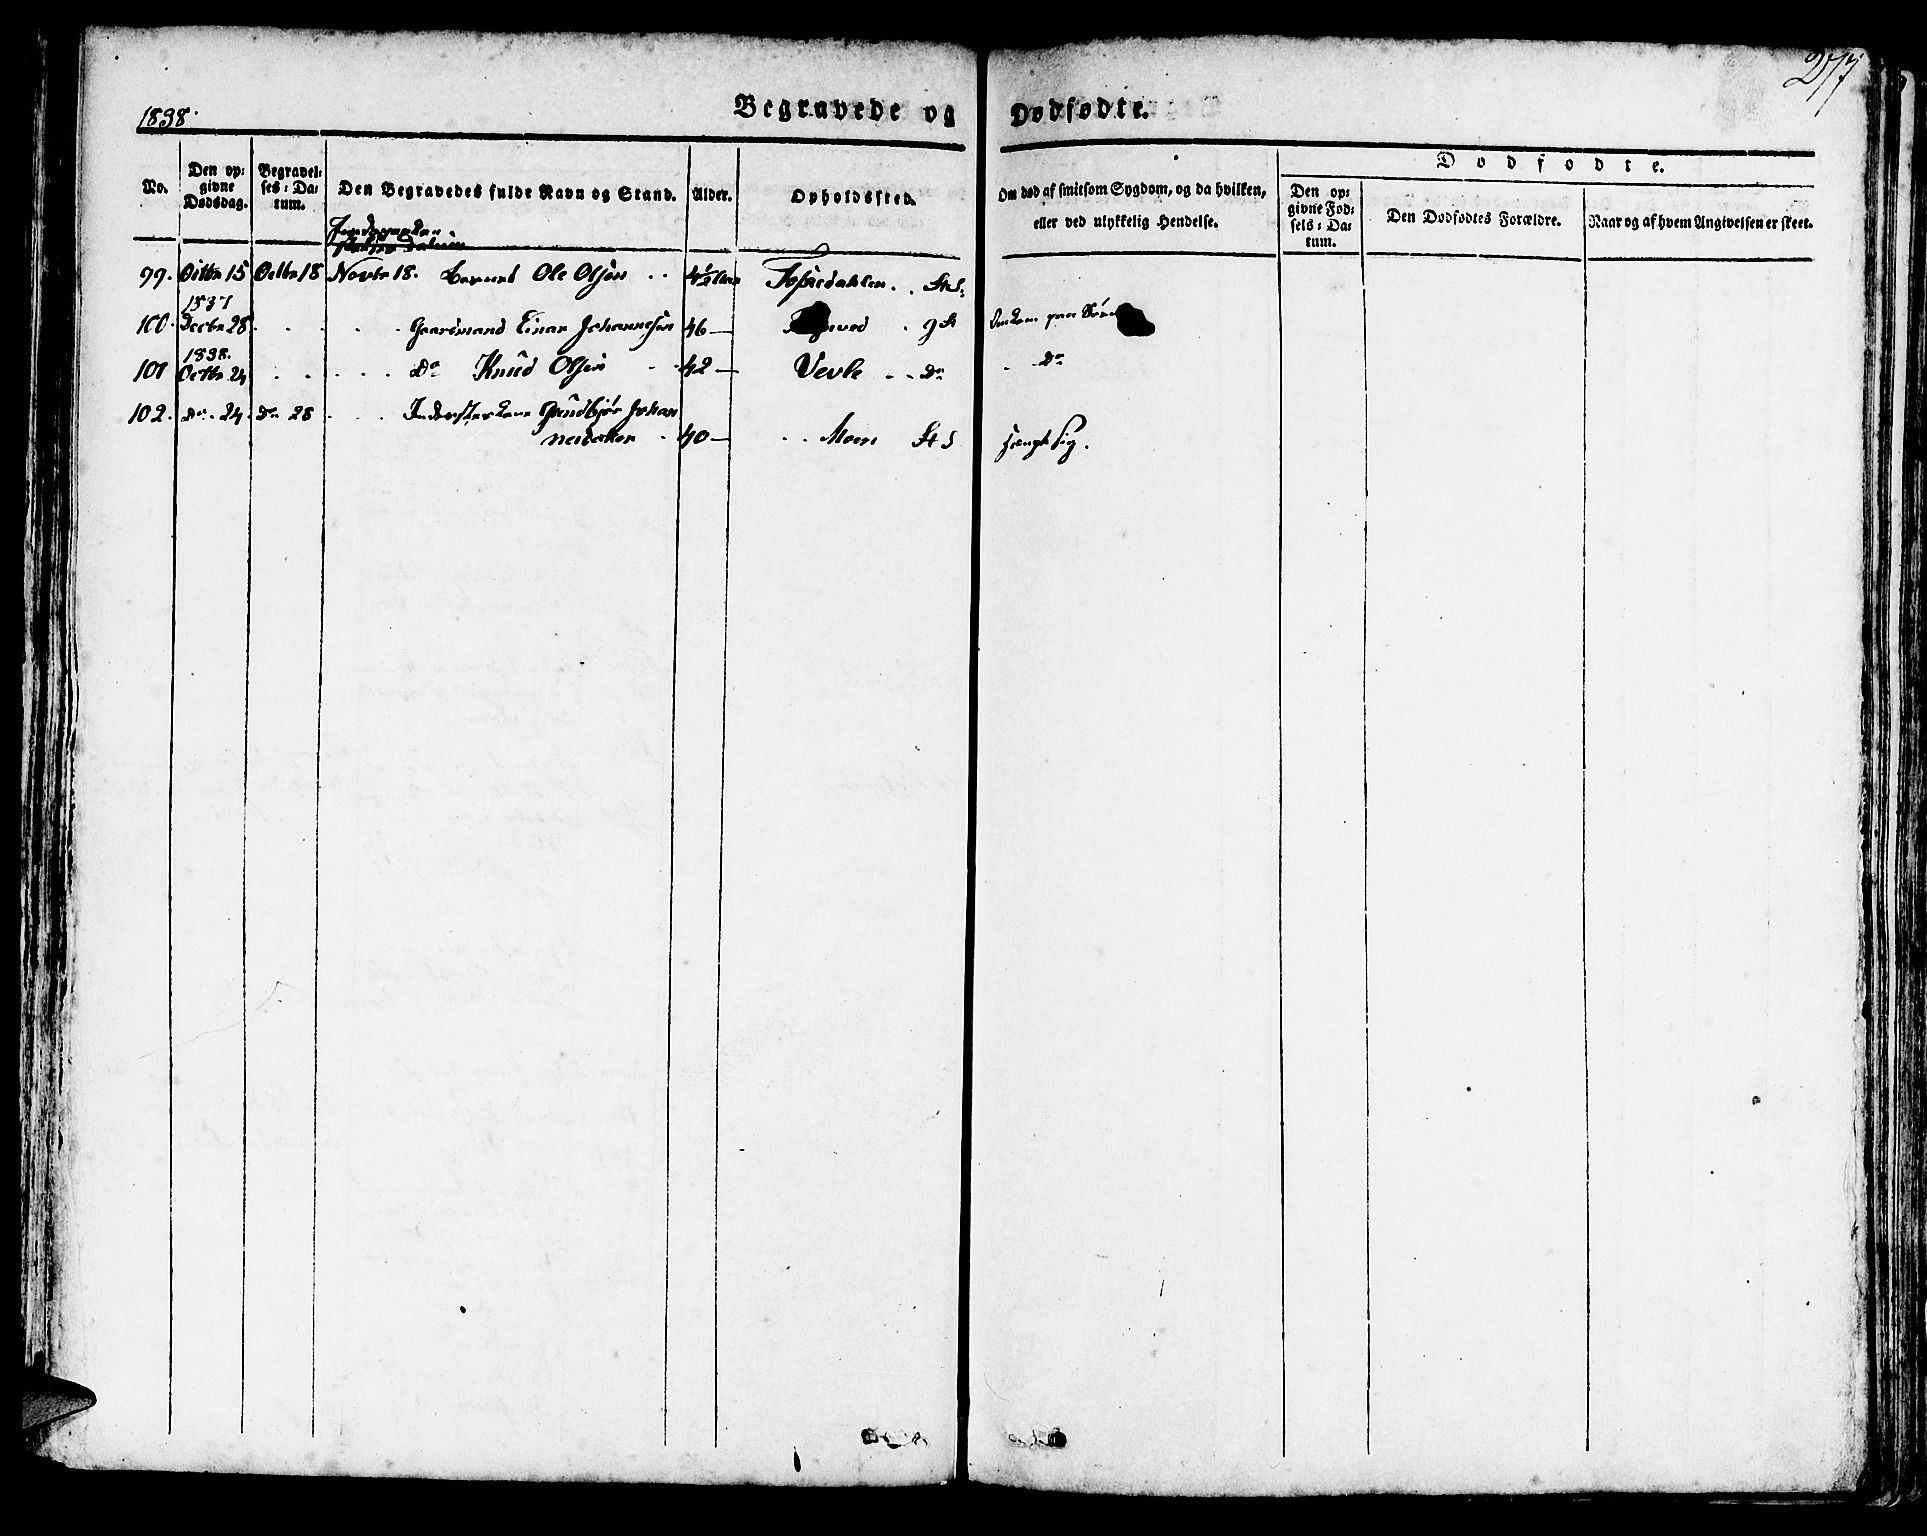 277
1838.
Begravede og Dødfødte.
No.
Den op-
givne
Dødsdag.
Begravel-
ses-Da-
tum.
Den Begravedes fulde Navn og Stand.
Alder.
Opholdssted.
Om død af smitsom Sygdom, og da hvilken,
eller ved ulykkelig Hendelse.
Dødfødte.
Den op-
givne Fød-
sels-Da-
tum.
Den Dødfødtes Forældre.
Naar og af hvem Angivelsen er skeet.
99. Octbr 15 Octbr 18 Novbr 18. Barnet Ole Olsen
1837
100. Decbr 28 Gaardmand Einar Johannesen 46 — paa
1838.
101 Octbr 24 Do Knud Olsen 42 — Vevle Do Do
102. Do 24 Do 28 Gundbjør Johan
nesdatter 40 — Moen St S